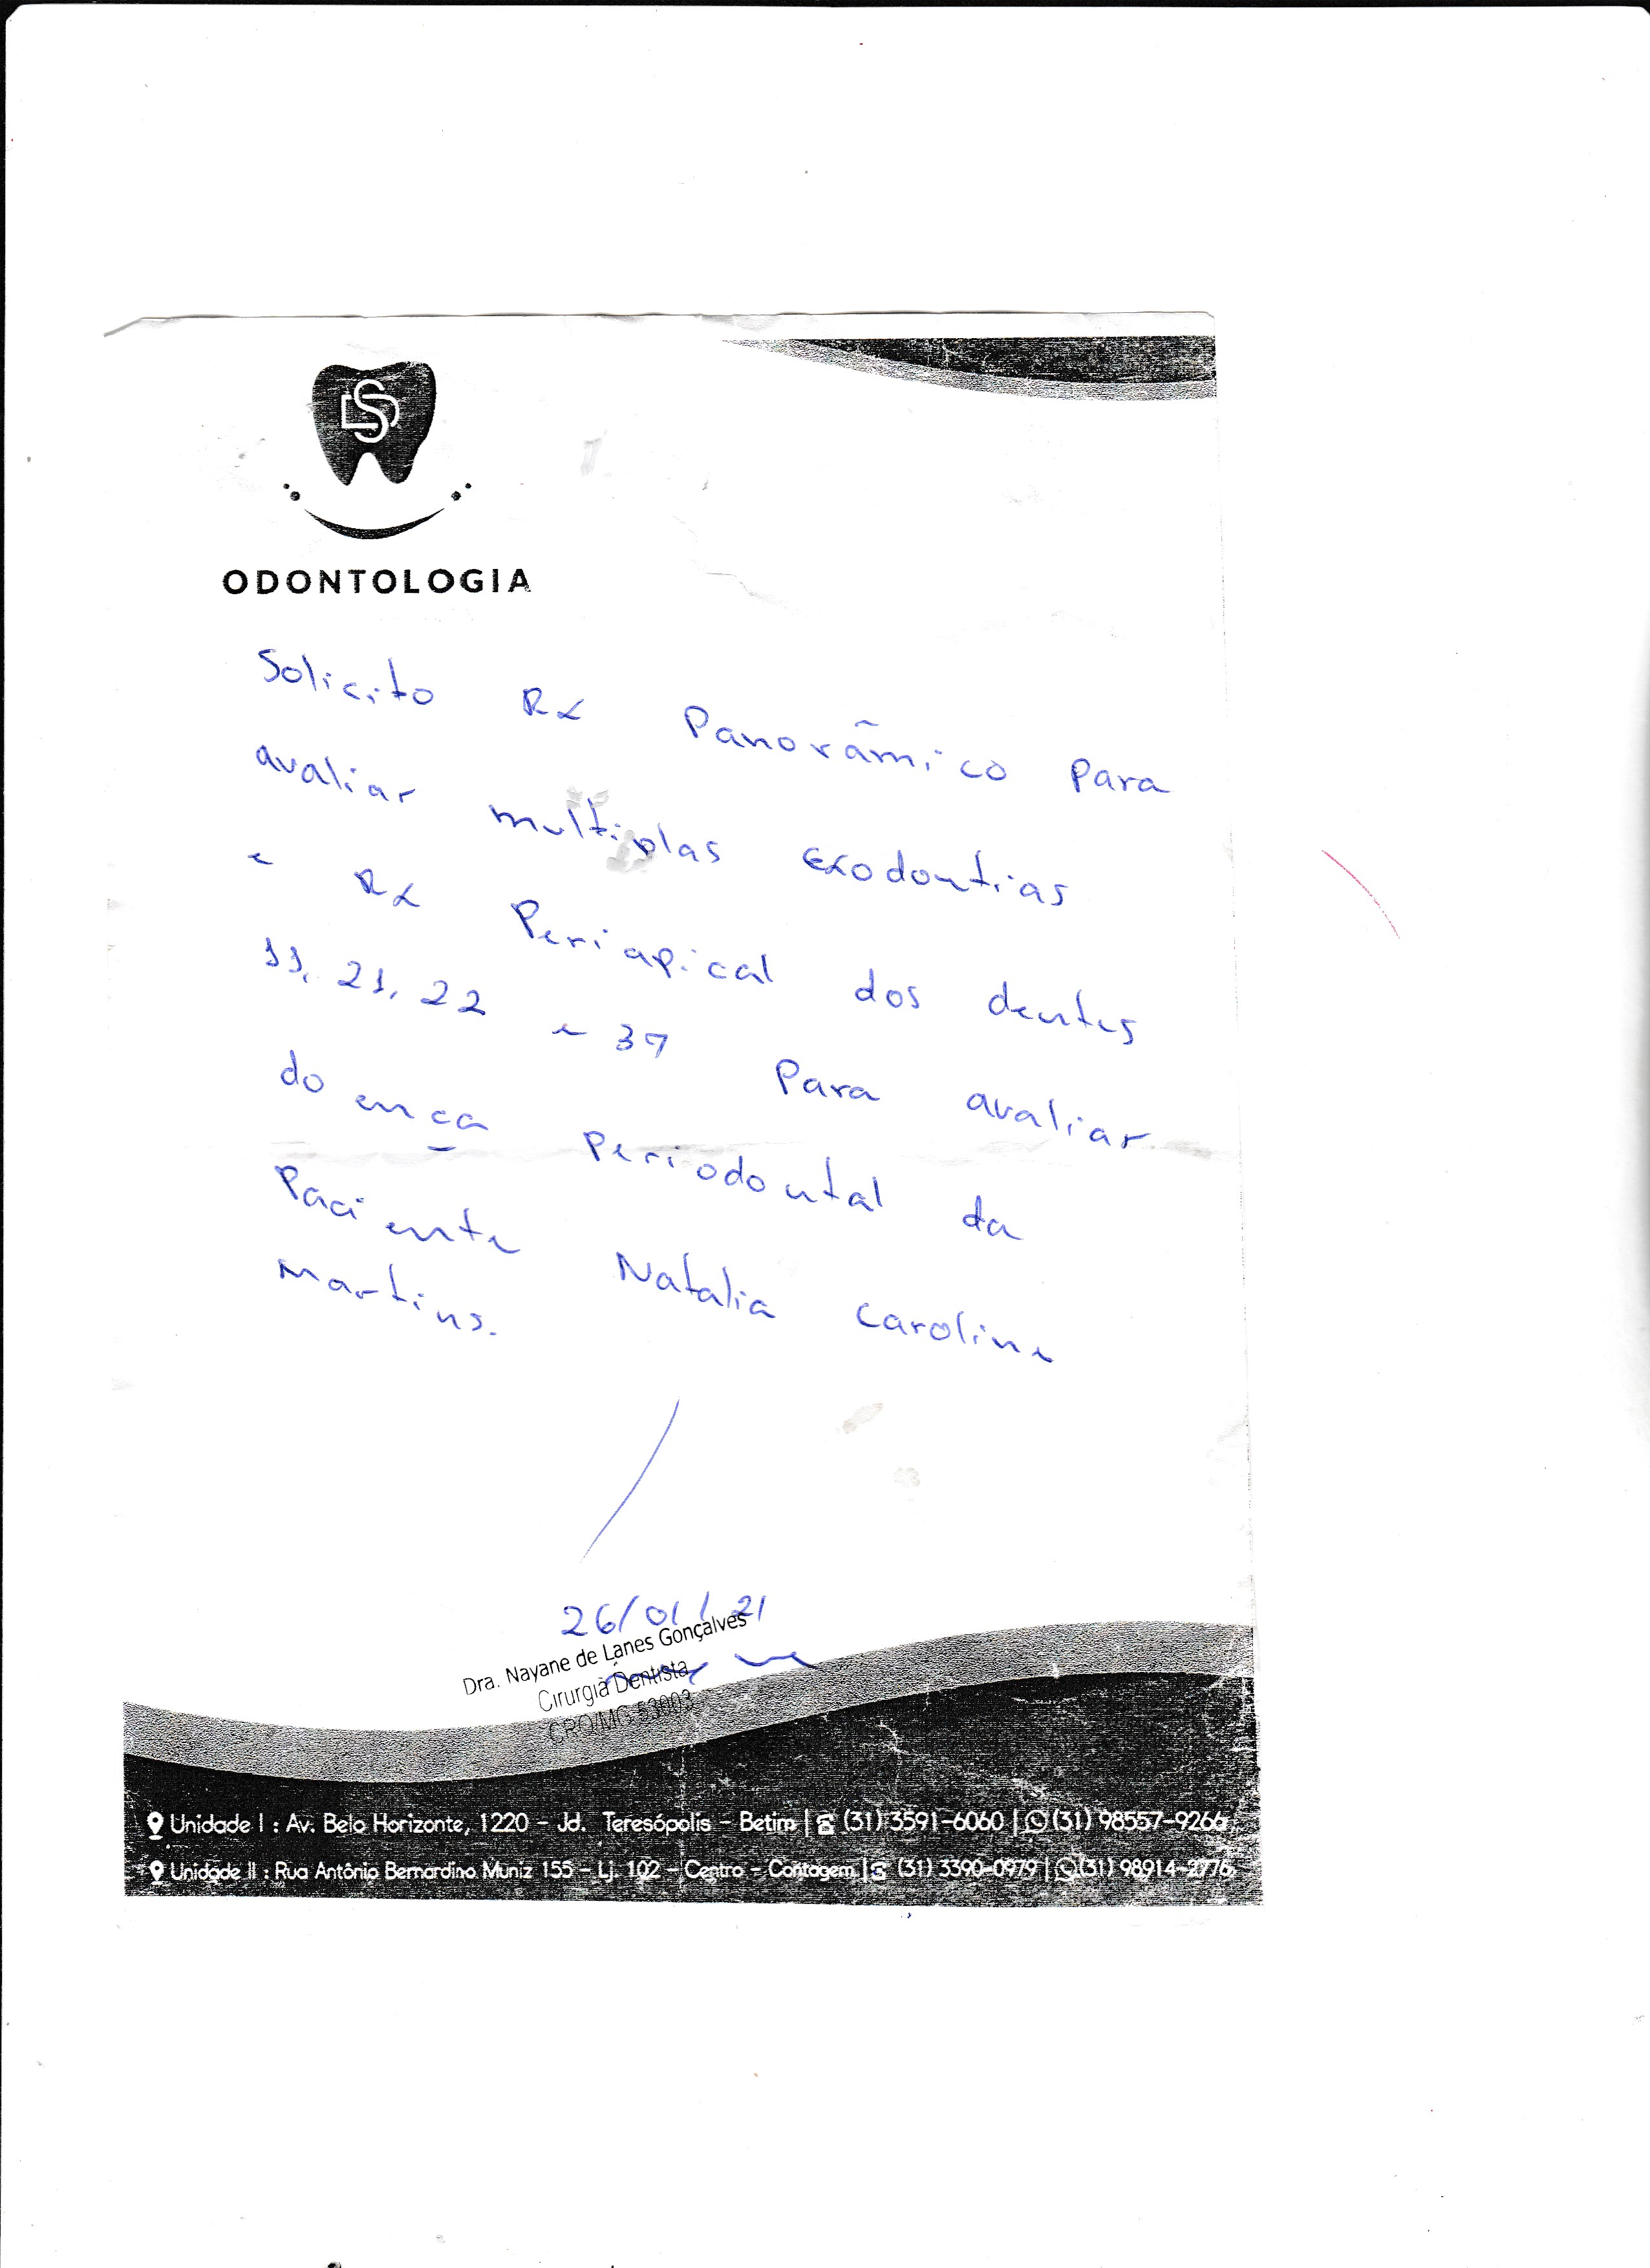 DS
ODONTOLOGIA
Solicito Rx Panorâmico para
avaliar multiplas exodontias
e Rx Periapical dos dentes
11, 21, 22 e 37 para avaliar
doença periodontal da
Paciente Natalia Caroline
Martins.
26/01/21
Dra. Nayane de Lanes Gonçalves
Cirurgiã Dentista
CRO/MG 53003
Unidade I : Av. Belo Horizonte, 1220 - Jd. Teresópolis - Betim | (31) 3591-6060 | (31) 98557-9266
Unidade II : Rua Antônio Bernardino Muniz 155 - Lj. 102 - Centro - Contagem | (31) 3390-0979 | (31) 98914-2776